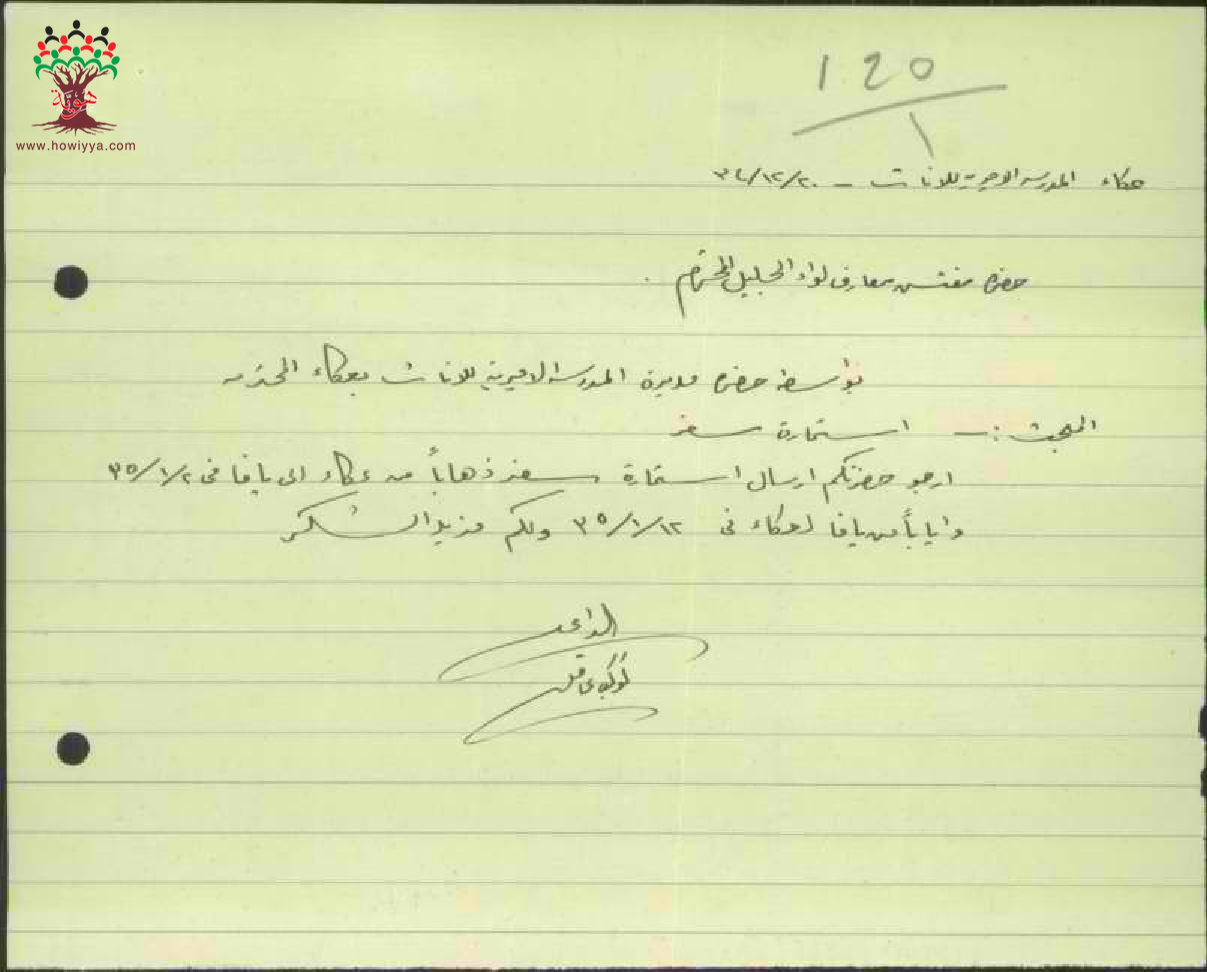 هوية
www.howiyya.com
120
1
عكاء المدرسة الاميرية للاناث - ٢٠/١٢/٣٤
حضرة مفتش معارف لواء الجليل المحترم .
بواسطة حضرة مديرة المدرسة الاميرية للاناث بعكاء المحترمه
المبحث :- استمارة سفر
ارجو حضرتكم ارسال استمارة سفر ذهاباً من عكاء الى يافا في ٢/١/٣٥
واياباً من يافا لعكاء في ١٢/١/٣٥ ولكم مزيد الشكر
كوكب